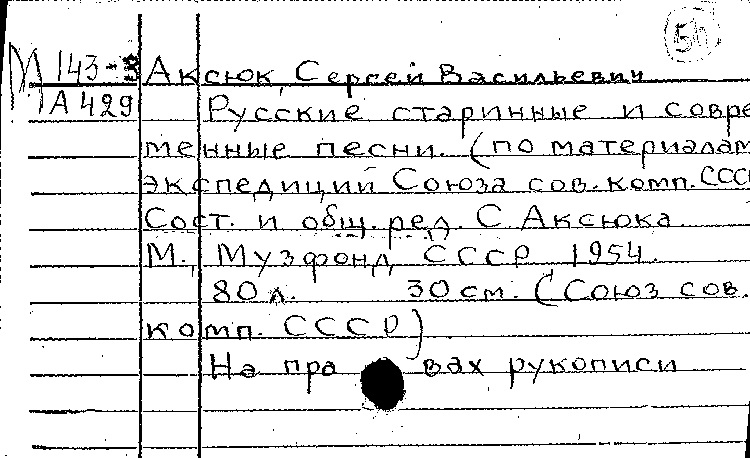 М 143-3 Аксюк, Сергей Васильевич
А 429 Русские старинные и совре
менные песни. (по материалам
экспедиций Союза сов. комп. СССР
Сост. и общ. ред. С. Аксюка
М., Музфонд СССР 1954.
80 л. 30 см. (Союз сов.
комп. СССР)
На правах рукописи